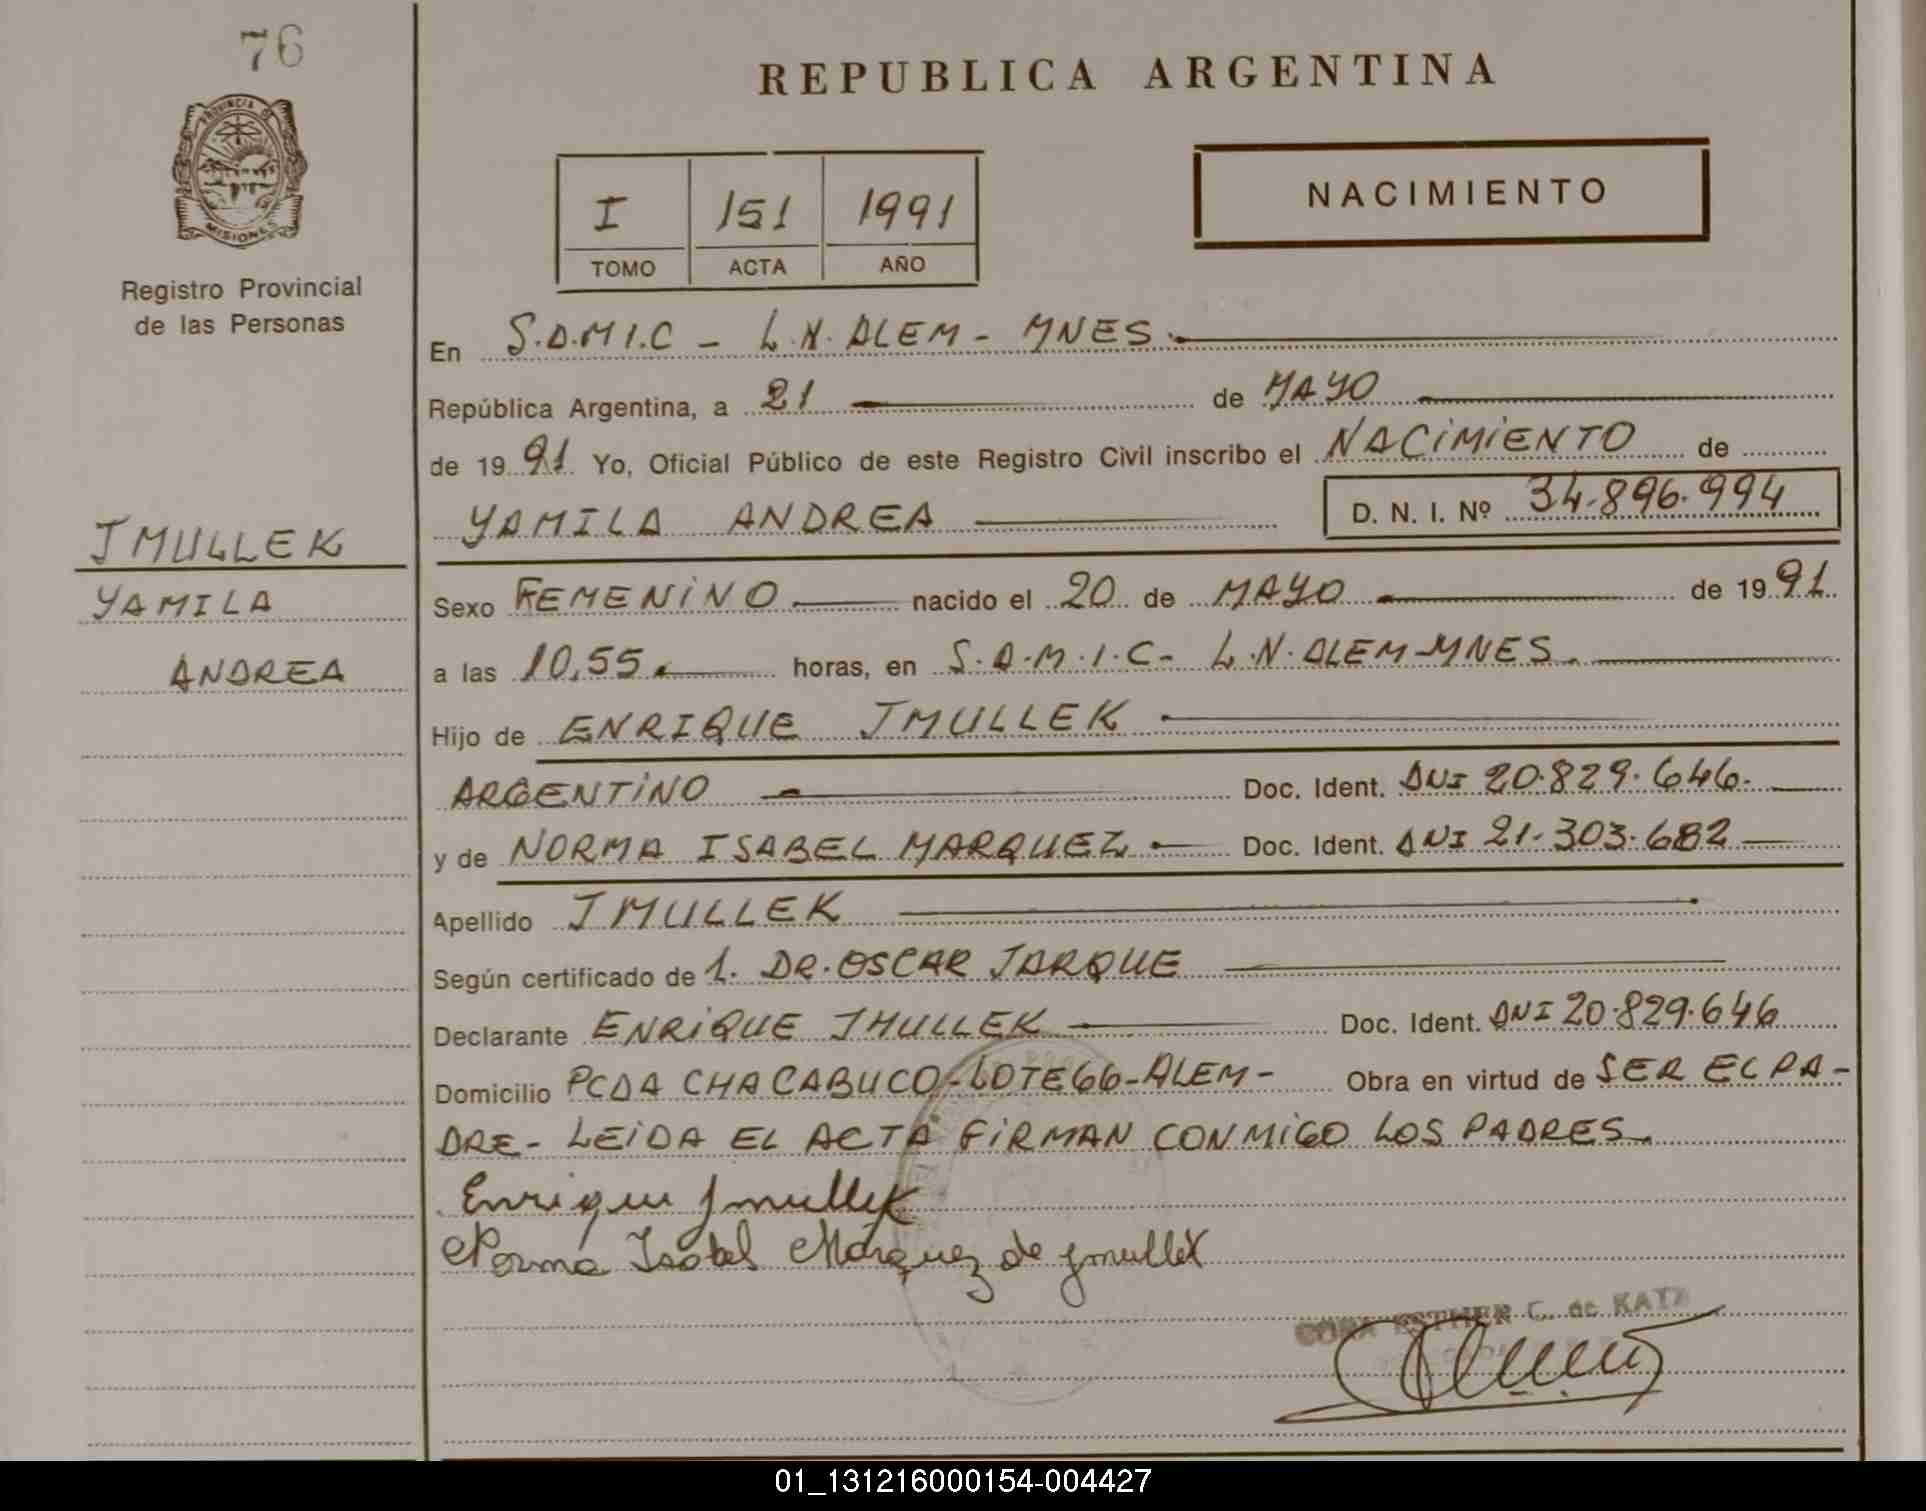 76
PROVINCIA DE
MISIONES
Registro Provincial
de las Personas
JMULLEK
YAMILA
ANDREA
REPUBLICA ARGENTINA
I 151 1991
TOMO ACTA AÑO
NACIMIENTO
En S.A.M.I.C - L.N. ALEM - MNES.
República Argentina, a 21 de MAYO
de 1991 Yo, Oficial Público de este Registro Civil inscribo el NACIMIENTO de
YAMILA ANDREA D. N. I. Nº 34.896.994
Sexo FEMENINO nacido el 20 de MAYO de 1991
a las 10,55 horas, en S.A.M.I.C- L.N. ALEM-MNES.
Hijo de ENRIQUE JMULLEK
ARGENTINO Doc. Ident. DNI 20.829.646.
y de NORMA ISABEL MARQUEZ Doc. Ident. DNI 21.303.682
Apellido JMULLEK
Según certificado de 1. DR. OSCAR JARQUE
Declarante ENRIQUE JMULLEK Doc. Ident. DNI 20.829.646
Domicilio PCDA CHACABUCO-LOTE 66-ALEM- Obra en virtud de SER EL PA-
DRE- LEIDA EL ACTA FIRMAN CONMIGO LOS PADRES.
Enrique Jmullek
Norma Isabel Márquez de Jmullek
ESTHER C. de KATZ
01_131216000154-004427